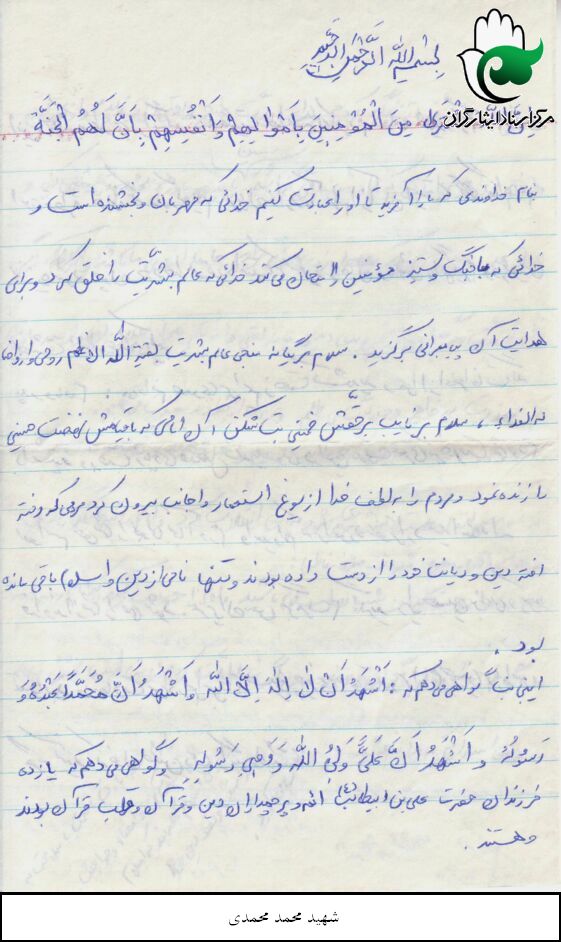 بِسْمِ اللهِ الرَّحْمنِ الرَّحیم
مرکز اسناد ایثارگران
اِنَّ اللهَ اشْتَری مِنَ الْمُؤْمِنینَ بِاَمْوالِهِمْ وَاَنْفُسِهِمْ بِاَنَّ لَهُمُ الْجَنَّةَ
بنام خداوندی که ما را آفرید تا او را عبادت کنیم خدائی که مهربان و بخشنده است و
خدائی که با جنگ و ستیز مؤمنین را امتحان می کند خدائی که عالم بشریّت را خلق کرد و برای
هدایت آن پیامبرانی برگزید . سلام بر یگانه منجی عالم بشریت بقیة الله الاعظم روحی و ارواحنا
له الفداء ، سلام بر نایب برحقّش خمینی بت شکن آن امامی که با قیامش نهضت حسینی
را زنده نمود و مردم را به لطف خدا از یوغ استعمار و اجانب بیرون کرد مردمی که رفته
رفته دین و دیانت خود را از دست داده بودند و تنها نامی از دین و اسلام باقی مانده
بود .
اینجانب گواهی می دهم که : اَشْهَدُ اَنْ لا اِلهَ اِلاَّ اللهُ وَ اَشْهَدُ اَنَّ مُحَمَّداً عَبْدُهُ وَ
رَسُولُهُ وَ اَشْهَدُ اَنَّ عَلیّاً وَلیُّ اللهِ وَ وَصِی رَسُولِهِ وگواهی می دهم که یازده
فرزندان حضرت علی بن ابیطالب ائمه و پرچمداران دین و قرآن و قلب قرآن بودند
و هستند .
شهید محمد محمدی